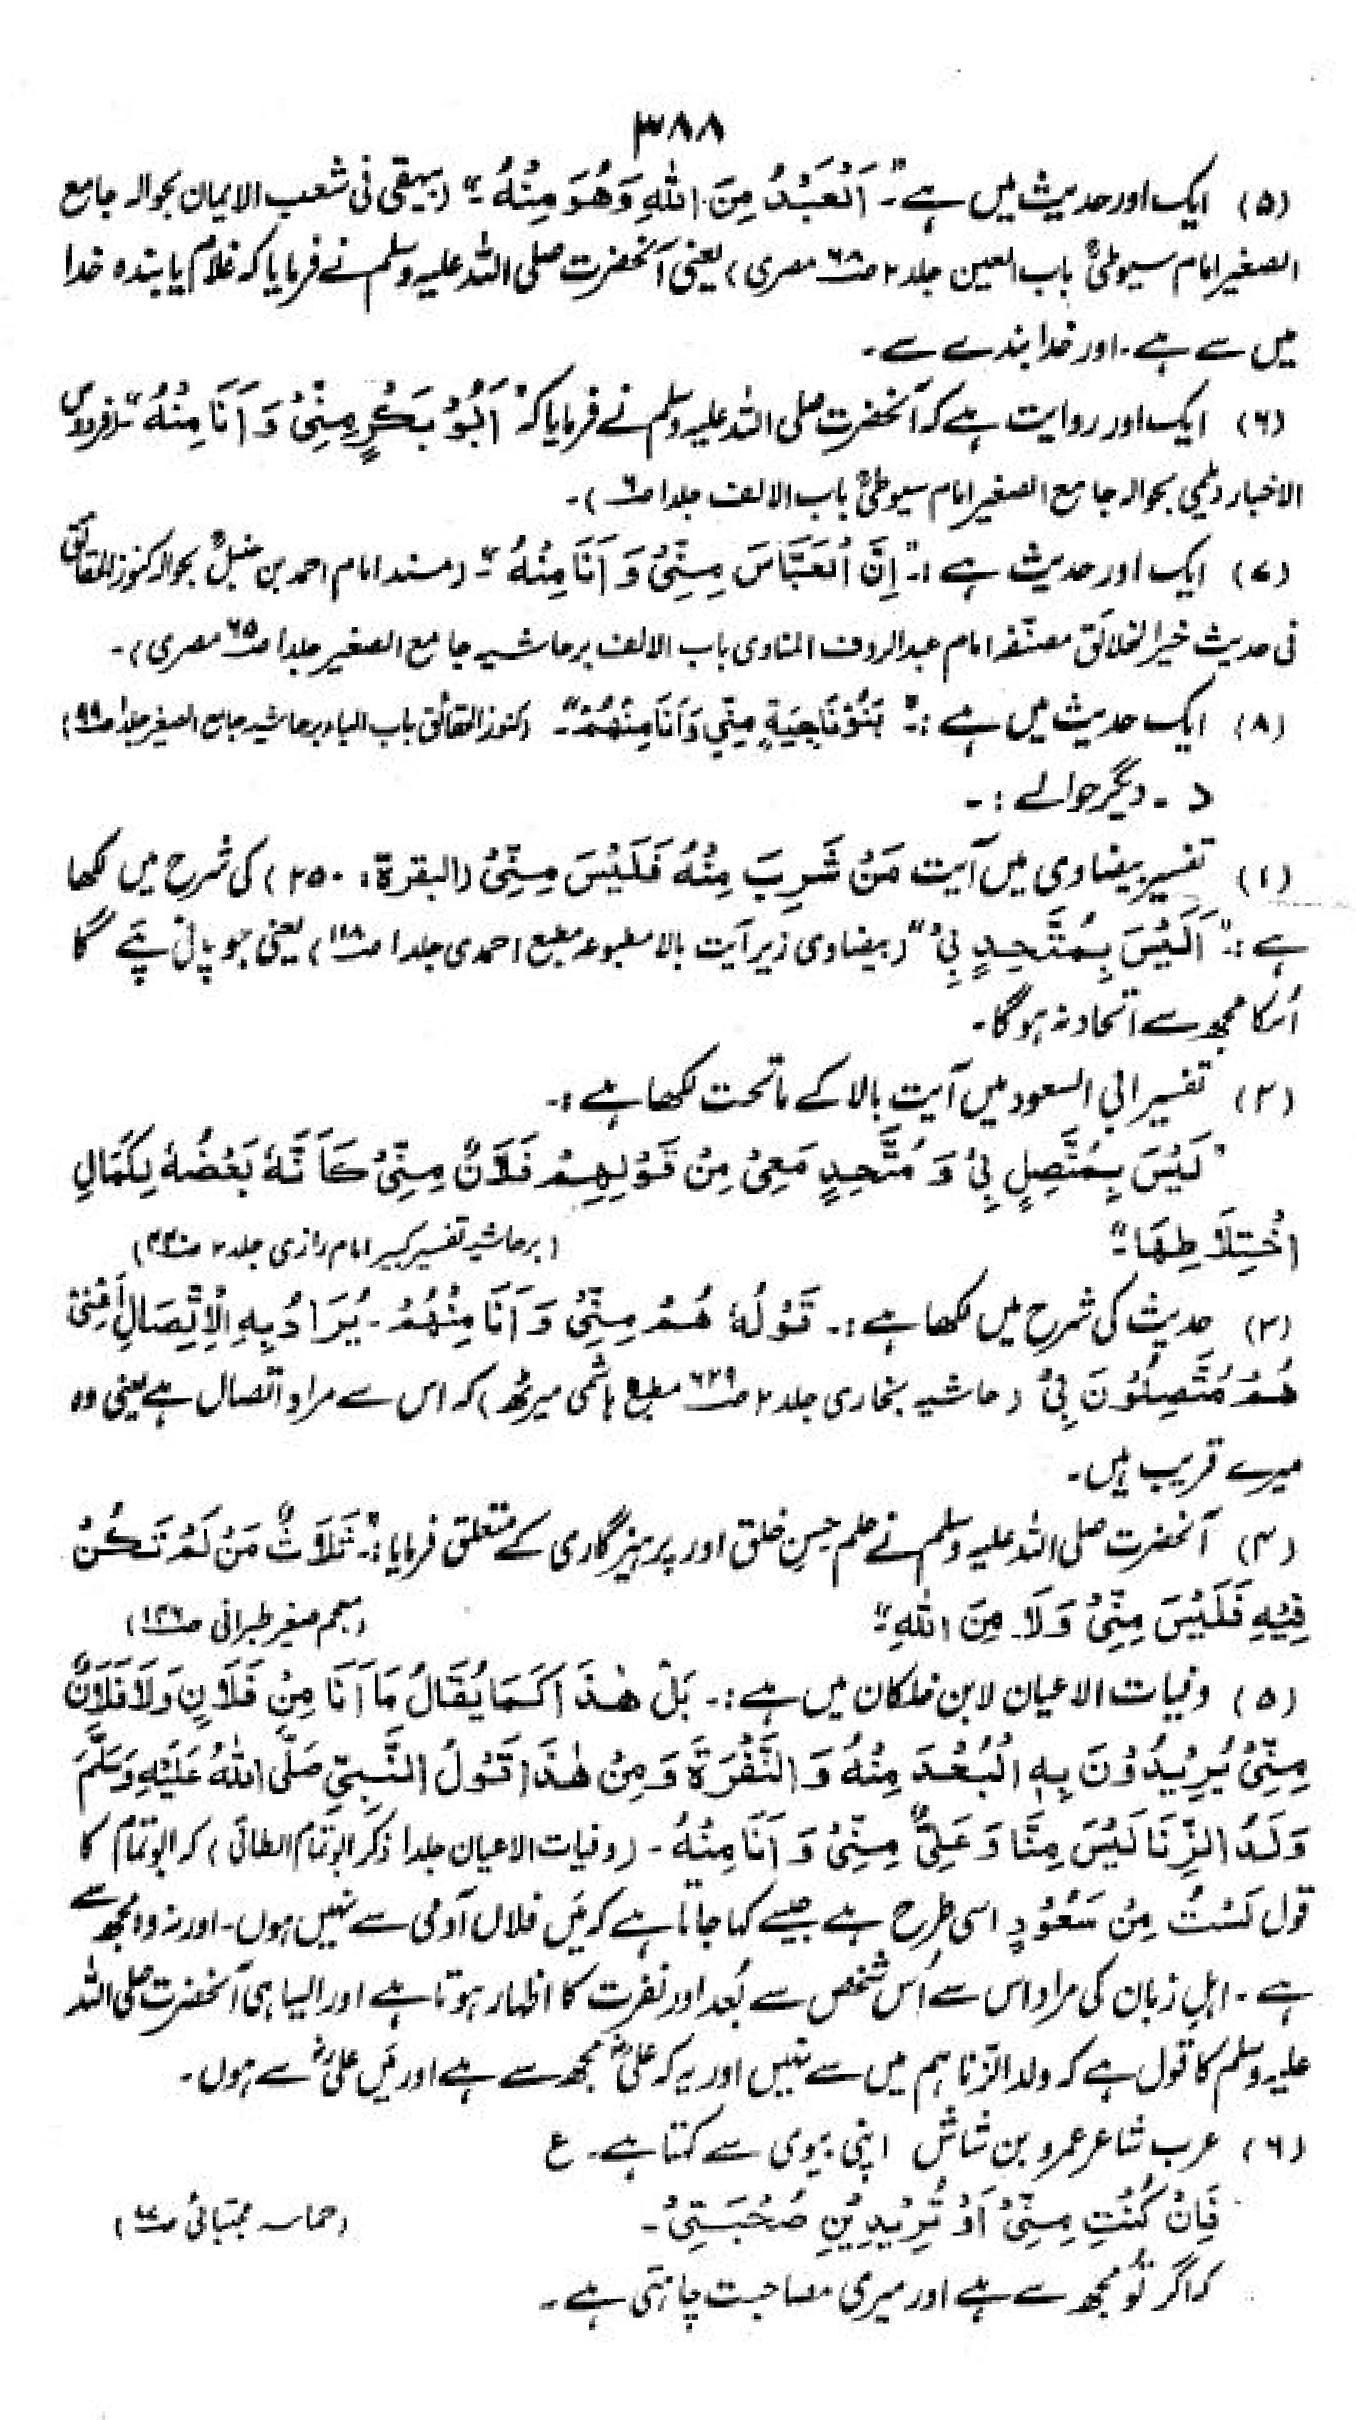 ۳۸۸
(۵) ایک اور حدیث میں ہے:۔ "اَلْعَبْدُ مِنَ اللّٰهِ وَهُوَ مِنْهُ۔" (بیہقی فی شعب الایمان بحوالہ جامع
الصغیر امام سیوطیؒ باب العین جلد ۲ صـ ۶۸ مصری) یعنی آنحضرت صلی اللہ علیہ وسلم نے فرمایا کہ غلام یا بندہ خدا
میں سے ہے۔ اور خدا بندے سے۔
(۶) ایک اور روایت ہے کہ آنحضرت صلی اللہ علیہ وسلم نے فرمایا کہ "اَبُوْ بَكْرٍ مِنِّىْ وَ اَنَا مِنْهُ" (فردوس
الاخبار دیلمی بحوالہ جامع الصغیر امام سیوطیؒ باب الالف جلد ۱ صـ ۶)۔
(۷) ایک اور حدیث ہے:۔ "اِنَّ الْعَبَّاسَ مِنِّىْ وَ اَنَا مِنْهُ"۔ (مسند امام احمد بن حنبلؒ بحوالہ کنوز الحقائق
فی حدیث خیر الخلائق مصنفہ امام عبدالروف المناوی باب الالف برحاشیہ جامع الصغیر جلد ۱ صـ ۶۵ مصری)۔
(۸) ایک حدیث میں ہے:۔ "بَنُوْ نَاجِيَةٍ مِنِّي وَاَنَا مِنْهُمْ"۔ (کنوز الحقائق باب الباء برحاشیہ جامع الصغیر جلد ۱ صـ ۹۹)
د ۔ دیگر حوالے:۔
(۱) تفسیر بیضاوی میں آیت مَنْ شَرِبَ مِنْهُ فَلَيْسَ مِنِّىْ (البقرة: ۲۵۰) کی شرح میں لکھا
ہے:۔ "اَلَيْسَ بِمُتَّحِدٍ بِىْ" (بیضاوی زیر آیت بالا مطبوعہ مطبع احمدی جلد ۱ صـ ۱۱۸) یعنی جو پانی پئے گا
اُس کا مجھ سے اتحاد نہ ہوگا۔
(۲) تفسیر ابی السعود میں آیت بالا کے ماتحت لکھا ہے:۔
"لَيْسَ بِمُتَّصِلٍ بِىْ وَ مُتَّحِدٍ مَعِىْ مِنْ قَوْلِهِمْ فَلَانٌ مِنِّىْ كَاَنَّهٗ بَعْضُهٗ لِكَمَالِ
اخْتِلَاطِهَا"۔ (برحاشیہ تفسیر کبیر امام رازی جلد ۲ صـ)
(۳) حدیث کی شرح میں لکھا ہے:۔ قَوْلُهٗ هُمْ مِنِّىْ وَ اَنَا مِنْهُمْ۔ يُرَادُ بِهِ الْاِتِّصَالِ اَعْنِىْ
هُمْ مُتَّصِلُوْنَ بِىْ (حاشیہ بخاری جلد ۲ صـ ۶۲۹ مطبع ہاشمی میرٹھ) کہ اس سے مراد اتصال ہے یعنی وہ
میرے قریب ہیں۔
(۴) آنحضرت صلی اللہ علیہ وسلم نے حلم، حسن خلق اور پرہیز گاری کے متعلق فرمایا:۔ "ثَلَاثٌ مَنْ لَمْ تَكُنْ
فِيْهِ فَلَيْسَ مِنِّىْ وَلَا مِنَ اللّٰهِ"۔ (معجم صغیر طبرانی صـ)
(۵) وفیات الاعیان لابن خلکان میں ہے:۔ بَلْ هٰذَا كَمَا يُقَالُ مَا اَنَا مِنْ فَلَانٍ وَلَا فَلَانٌ
مِنِّىْ يُرِيْدُوْنَ بِهِ الْبُعْدَ مِنْهُ وَ النَّفْرَةَ وَ مِنْ هٰذَا قَوْلُ النَّبِيِّ صَلَّى اللّٰهُ عَلَيْهِ وَسَلَّمَ
وَلَدُ الزِّنَا لَيْسَ مِنَّا وَ عَلِيٌّ مِنِّىْ وَ اَنَا مِنْهُ۔ (وفیات الاعیان جلد ۱ ذکر ابو تمام الطائی) کہ ابو تمام کا
قول لَسْتُ مِنْ سَعُوْدٍ اسی طرح ہے جیسے کہا جاتا ہے کہ مَیں فلاں آدمی سے نہیں ہوں۔ اور نہ وہ مجھ سے
ہے۔ اہل زبان کی مراد اس سے اُس شخص سے بُعد اور نفرت کا اظہار ہوتا ہے اور ایسا ہی آنحضرت صلی اللہ
علیہ وسلم کا قول ہے کہ ولد الزنا ہم میں سے نہیں اور یہ کہ علیؓ مجھ سے ہے اور مَیں علیؓ سے ہوں۔
(۶) عرب شاعر عمرو بن شاش اپنی بیوی سے کہتا ہے۔ ع
فَاِنْ كُنْتِ مِنِّىْ اَوْ تُرِيْدِيْنِ صُحْبَتِىْ۔ (حماسہ مجتبائی صـ)
کہ اگر تُو مجھ سے ہے اور میری مصاحبت چاہتی ہے۔